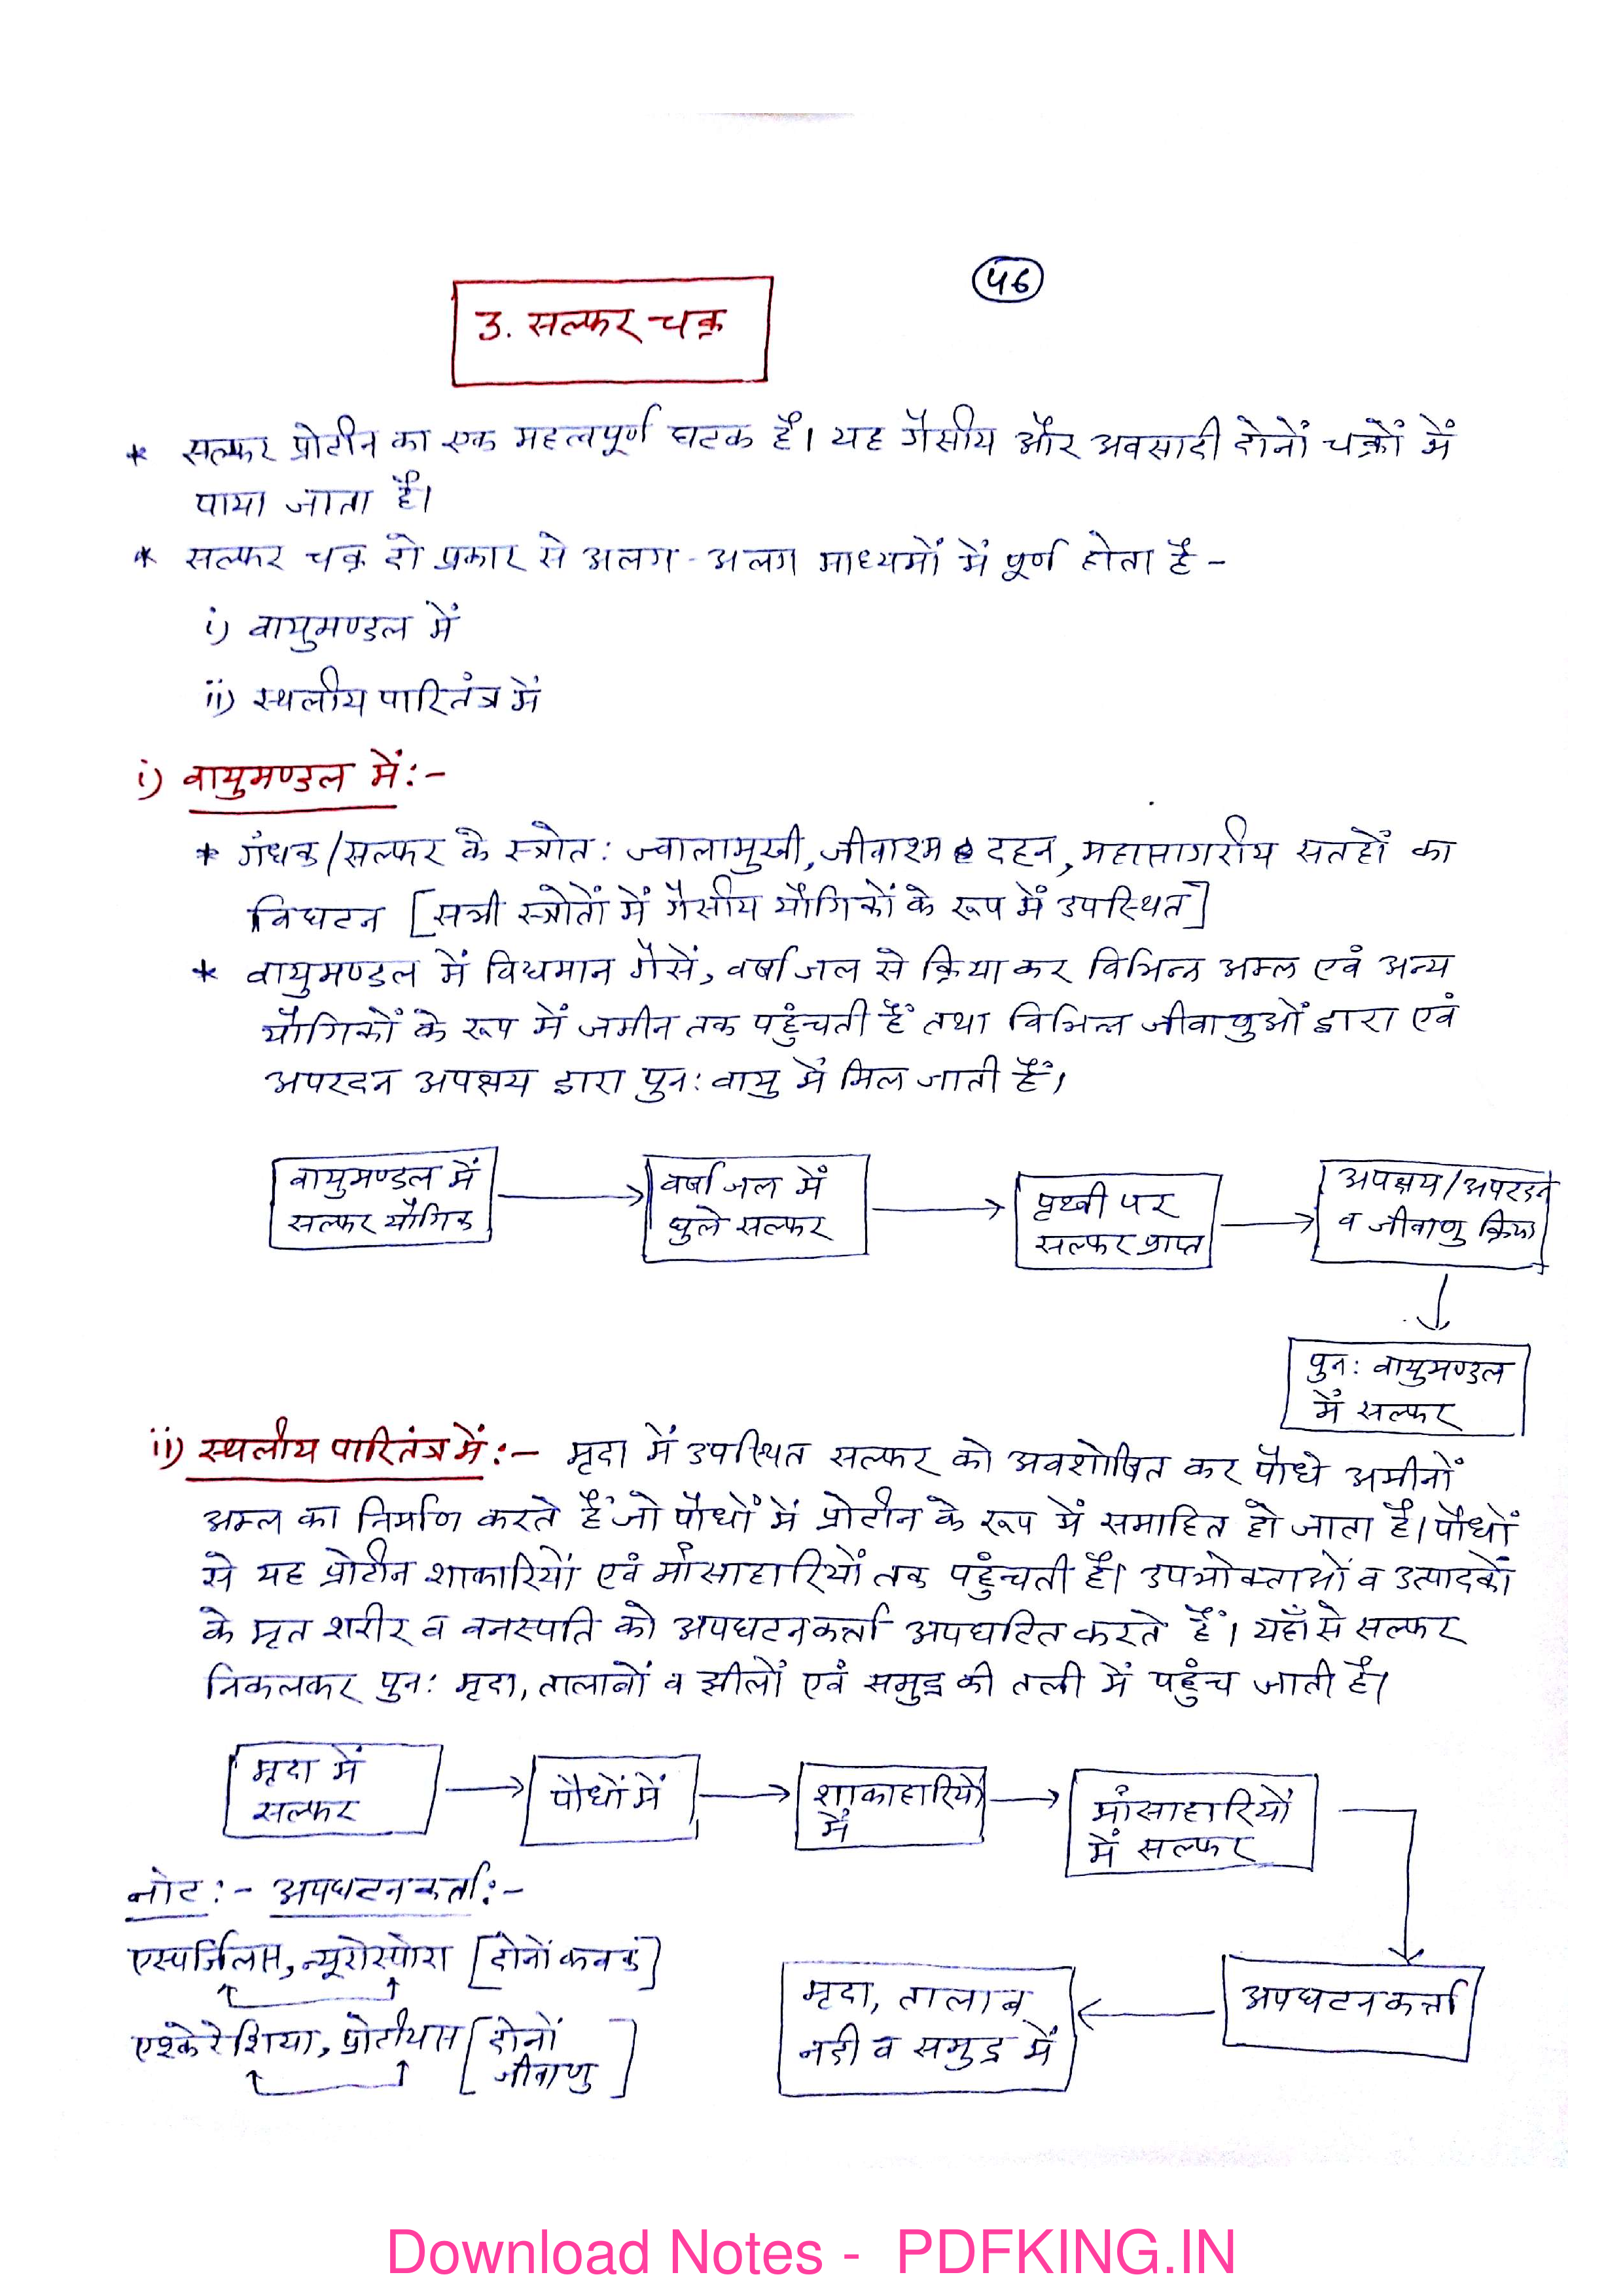 46
3. सल्फर चक्र
* सल्फर प्रोटीन का एक महत्वपूर्ण घटक है। यह गैसीय और अवसादी दोनों चक्रों में
पाया जाता है।
* सल्फर चक्र दो प्रकार से अलग-अलग माध्यमों में पूर्ण होता है -
i) वायुमण्डल में
ii) स्थलीय पारितंत्र में
i) वायुमण्डल में :-
* गंधक/सल्फर के स्त्रोत : ज्वालामुखी, जीवाश्म दहन, महासागरीय सतहों का
विघटन [सभी स्त्रोतों में गैसीय यौगिकों के रूप में उपस्थित]
* वायुमण्डल में विधमान गैसें, वर्षा जल से क्रिया कर विभिन्न अम्ल एवं अन्य
यौगिकों के रूप में जमीन तक पहुंचती हैं तथा विभिन्न जीवाणुओं द्वारा एवं
अपरदन अपक्षय द्वारा पुनः वायु में मिल जाती हैं।
वायुमण्डल में
सल्फर यौगिक
वर्षा जल में
घुले सल्फर
पृथ्वी पर
सल्फर प्राप्त
अपक्षय/अपरदन
व जीवाणु क्रिया
पुनः वायुमण्डल
में सल्फर
ii) स्थलीय पारितंत्र में :- मृदा में उपस्थित सल्फर को अवशोषित कर पौधे अमीनों
अम्ल का निर्माण करते हैं जो पौधों में प्रोटीन के रूप में समाहित हो जाता है। पौधों
से यह प्रोटीन शाकारियों एवं माँसाहारियों तक पहुंचती है। उपभोक्ताओं व उत्पादकों
के मृत शरीर व वनस्पति को अपघटनकर्त्ता अपघटित करते हैं। यहाँ से सल्फर
निकलकर पुनः मृदा, तालाबों व झीलों एवं समुद्र की तली में पहुंच जाती है।
मृदा में
सल्फर
पौधों में
शाकाहारियों
में
माँसाहारियों
में सल्फर
अपघटनकर्त्ता
मृदा, तालाब
नदी व समुद्र में
नोट :- अपघटनकर्ता :-
एस्पर्जिलस, न्यूरोस्पोरा [दोनों कवक]
एश्केरेशिया, प्रोटीयस [दोनों
जीवाणु]
Download Notes - PDFKING.IN